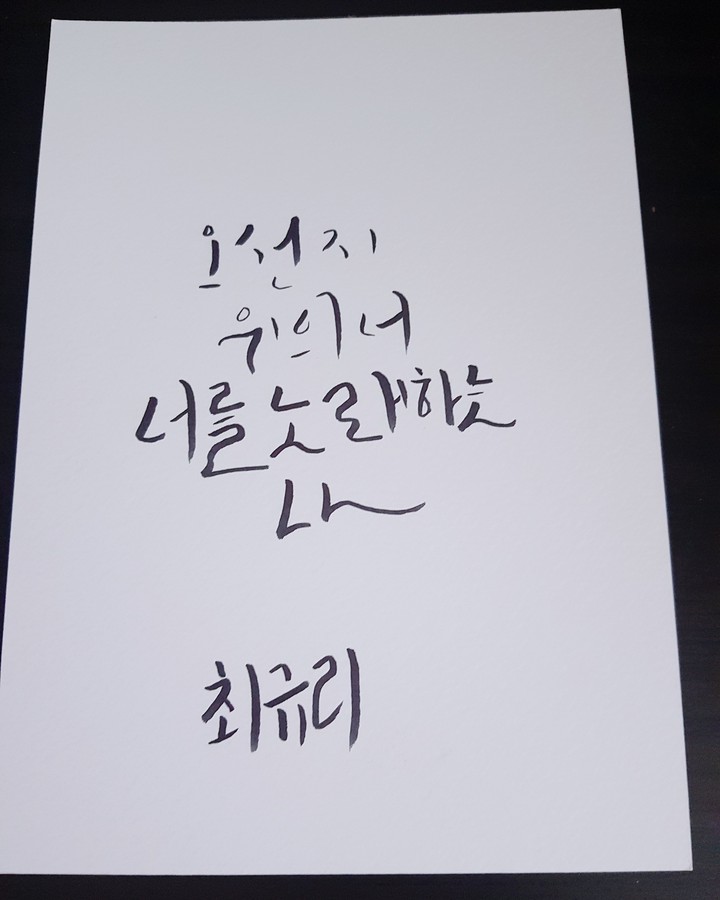 오선지
위의 너
너를 노래하는
나
최규리